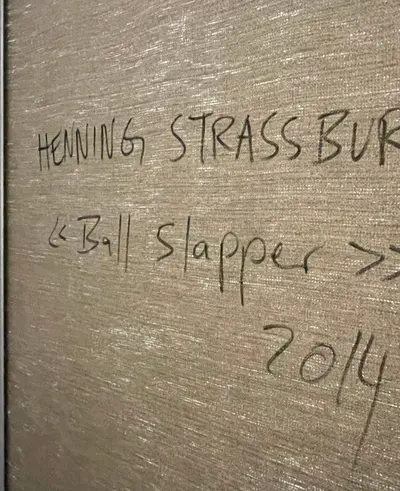 HENNING STRASSBUR
<< Ball Slapper >>
2014